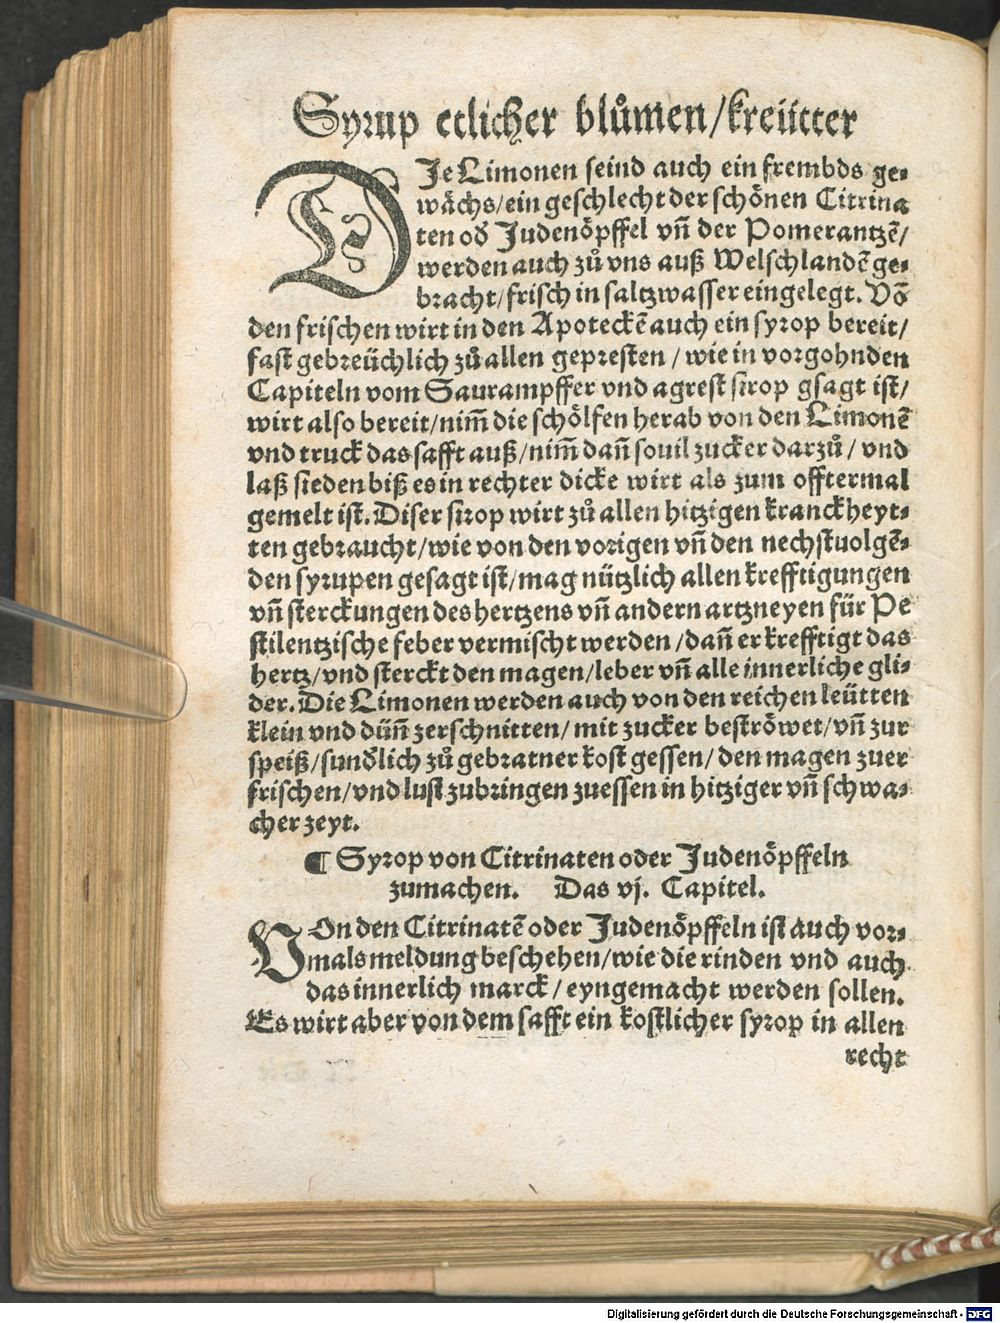 Syrup etlicher blůmen/kreütter
DIe Limonen seind auch ein frembds ge⸗
wächs/ein geschlecht der schönen Citrina
ten oď Judenöpffel vñ der Pomerantzē/
werden auch zů vns auß Welschlandē ge⸗
bracht/frisch in saltzwasser eingelegt. Vō
den frischen wirt in den Apoteckē auch ein syrop bereit/
fast gebreüchlich zů allen gepresten/wie in vorgohnden
Capiteln vom Saurampffer vnd agrest sirop gsagt ist/
wirt also bereit/nim̄ die schölfen herab von den Limonē
vnd truck das safft auß/nim̄ dañ souil zucker darzů/vnd
laß sieden biß es in rechter dicke wirt als zum offtermal
gemelt ist. Diser sirop wirt zů allen hitzigen kranckheyt⸗
ten gebraucht/wie von den vorigen vñ den nechstuolgē⸗
den syrupen gesagt ist/mag nützlich allen krefftigungen
vñ sterckungen des hertzens vñ andern artzneyen für Pe
stilentzische feber vermischt werden/dañ er krefftigt das
hertz/vnd sterckt den magen/leber vñ alle innerliche gli⸗
der. Die Limonen werden auch von den reichen leütten
klein vnd düñ zerschnitten/mit zucker beströwet/vñ zur
speiß/sunďlich zů gebratner kost gessen/den magen zuer
frischen/vnd lust zubringen zuessen in hitziger vñ schwa⸗
cher zeyt.
¶ Syrop von Citrinaten oder Judenöpffeln
zumachen. Das vj. Capitel.
VOn den Citrinatē oder Judenöpffeln ist auch vor⸗
mals meldung beschehen/wie die rinden vnd auch
das innerlich marck/eyngemacht werden sollen.
Es wirt aber von dem safft ein kostlicher syrop in allen
recht
Digitalisierung gefördert durch die Deutsche Forschungsgemeinschaft - DFG